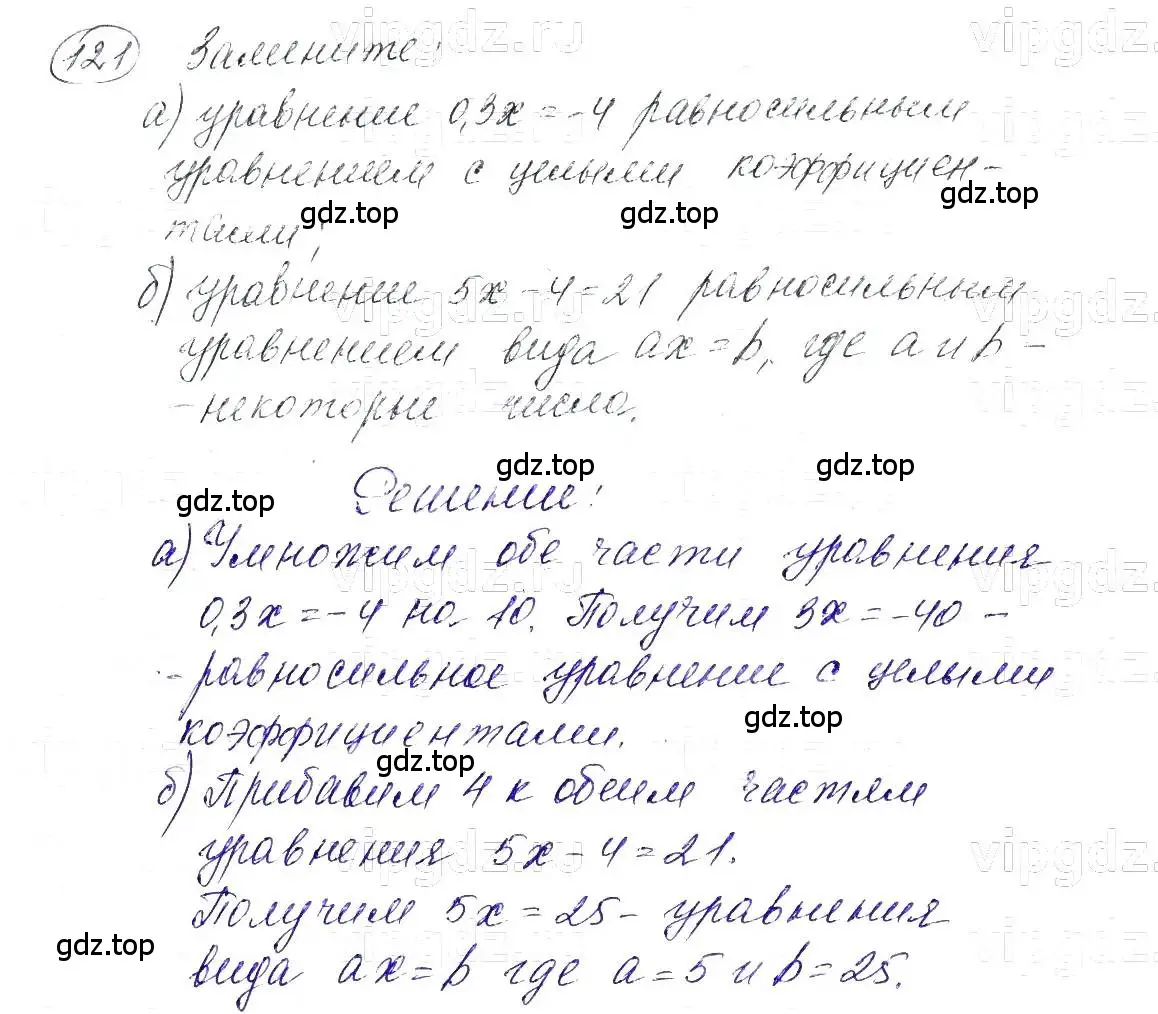 121 Замените:
а) уравнение 0,3x = -4 равносильным
уравнением с целыми коэффициен-
тами;
gdz.top gdz.top gdz.top
б) уравнение 5x - 4 = 21 равносильным
уравнением вида ax = b, где a и b -
- некоторые числа.
gdz.top gdz.top gdz.top
Решение:
а) Умножим обе части уравнения
0,3x = -4 на 10. Получим 3x = -40 -
- равносильное уравнение с целыми
коэффициентами.
gdz.top gdz.top
б) Прибавим 4 к обеим частям
уравнения 5x - 4 = 21.
Получим 5x = 25 - уравнения
gdz.top
вида ax = b где a = 5 и b = 25.
vipgdz.ru